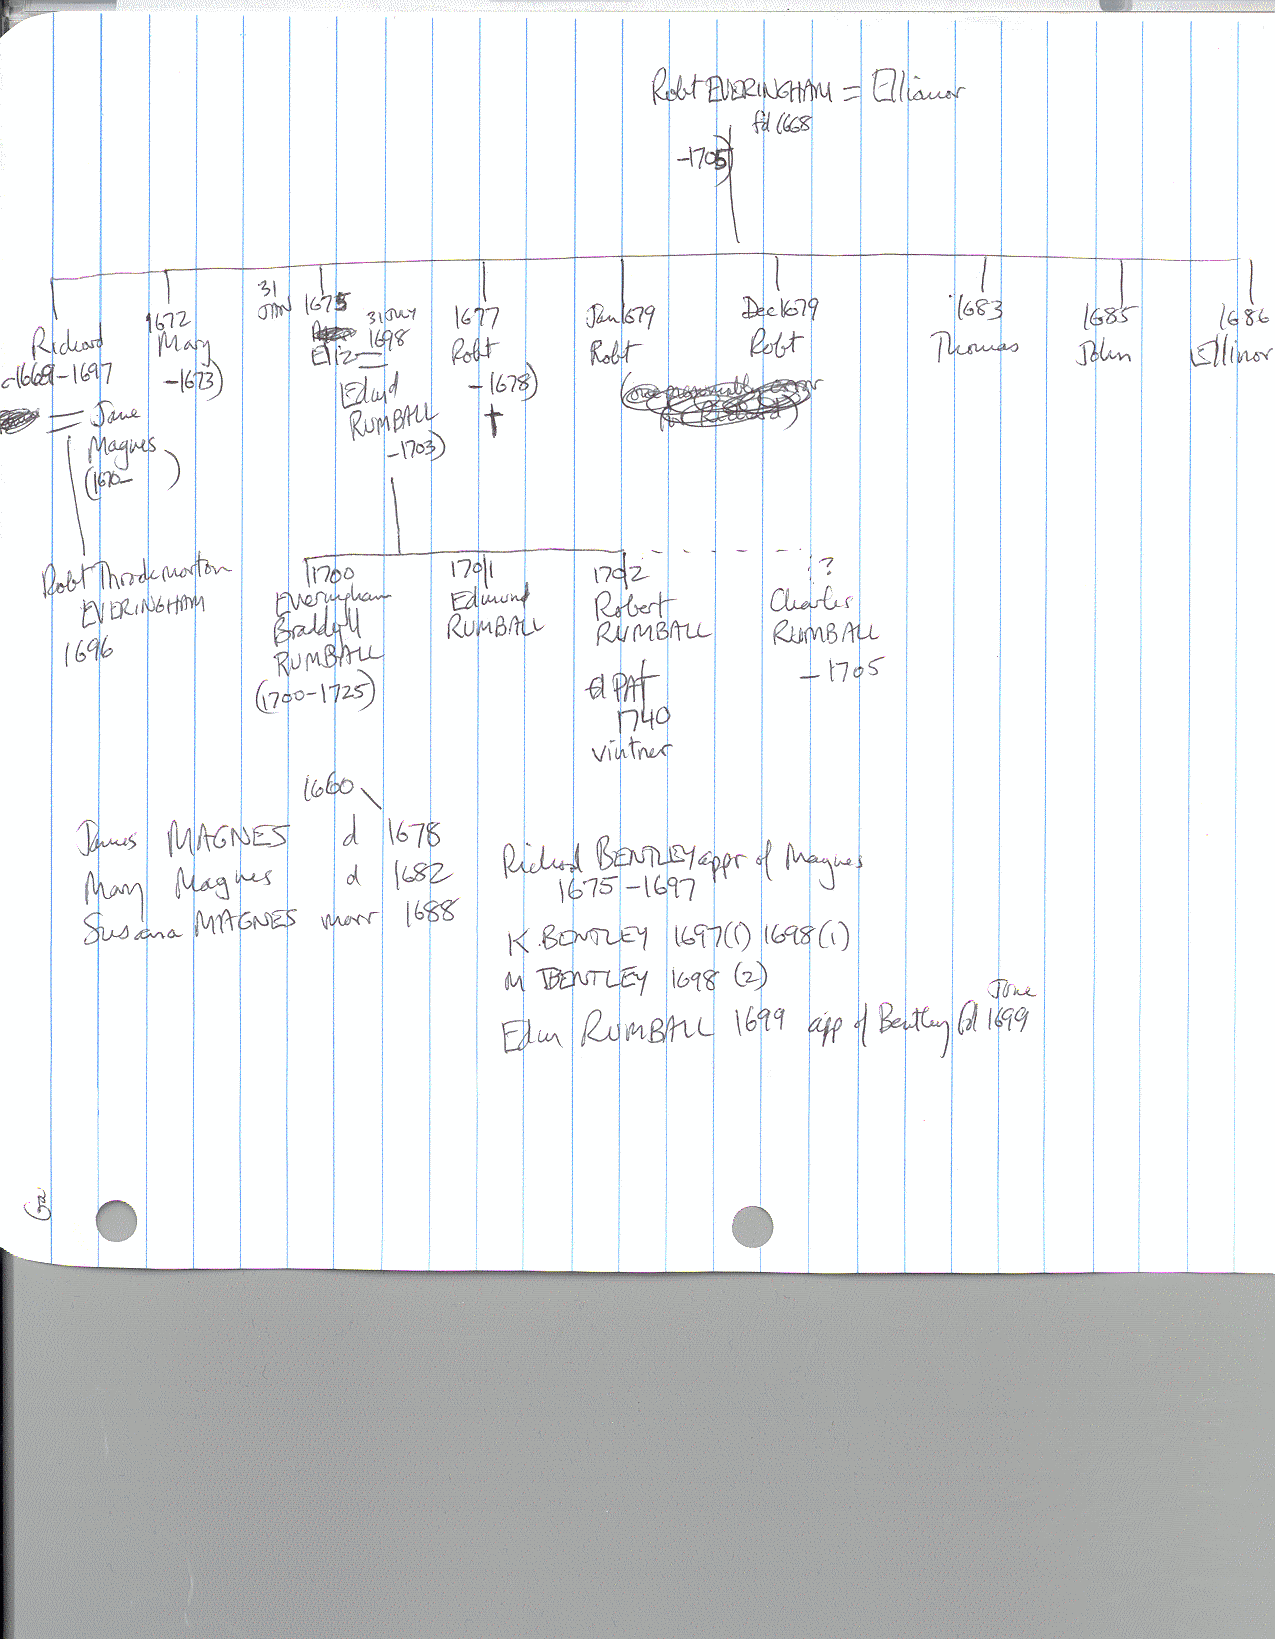 Robt EVERINGHAM = Ellianor
fd 1668
-1705)
Richard
c1669-1697
= Jane
Magnes
(1670- )
1672
Mary
-1673)
31
JAN 1675
Eliz =
31 July
1698
Edmd
RUMBALL
-1703)
1677
Robt
-1678)
†
Jan 1679
Robt
Dec 1679
Robt
1683
Thomas
1685
John
1686
Ellinor
Robt Throckmorton
EVERINGHAM
1696
1700
Everingham
Braddyll
RUMBALL
(1700-1725)
1701
Edmund
RUMBALL
1702
Robert
RUMBALL
PAT
1740
vintner
?
Charles
RUMBALL
-1705
1660
James MAGNES d 1678
Mary Magnes d 1682
Susana MAGNES marr 1688
Richard BENTLEY appr of Magnes
1675-1697
K. BENTLEY 1697(1) 1698(1)
M BENTLEY 1698 (2)
June
Edm RUMBALL 1699 app of Bentley fd 1699